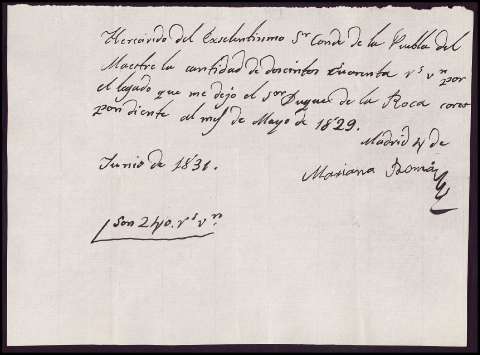 He recivido del Exselentisimo Sr Conde de la Puebla del
Maestre la cantidad de doscintos Cuarenta rs vn por
el legado que me dejo el Sor Duque de la Roca corres
pondiente al mes de Mayo de 1829.
Madrid 4 de
Junio de 1831.
Mariana Román
Son 240. rs vn